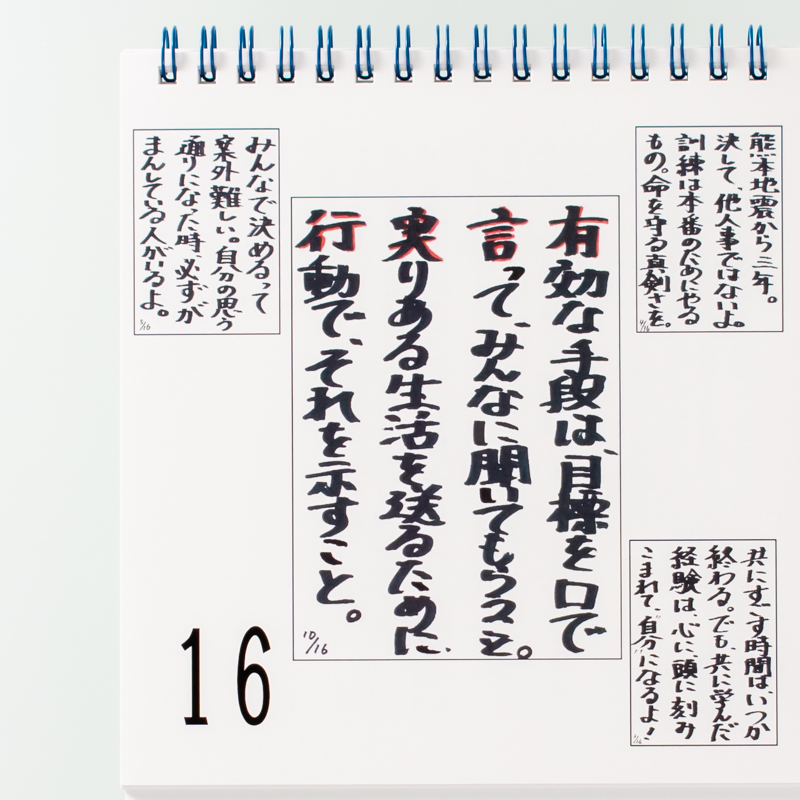 熊本地震から三年。
決して、他人事ではないよ。
訓練は本番のためにやる
もの。命を守る真剣さを。
4/16
有効な手段は、目標を口で
言って、みんなに聞いてもらうこと。
実りある生活を送るために、
行動で、それを示すこと。
10/16
みんなで決めるって
案外難しい。自分の思う
通りになった時、必ずが
まんしている人がいるよ。
5/16
共にすごす時間は、いつか
終わる。でも、共に学んだ
経験は、心に、頭に刻み
こまれて、“自分”になるよ!
16